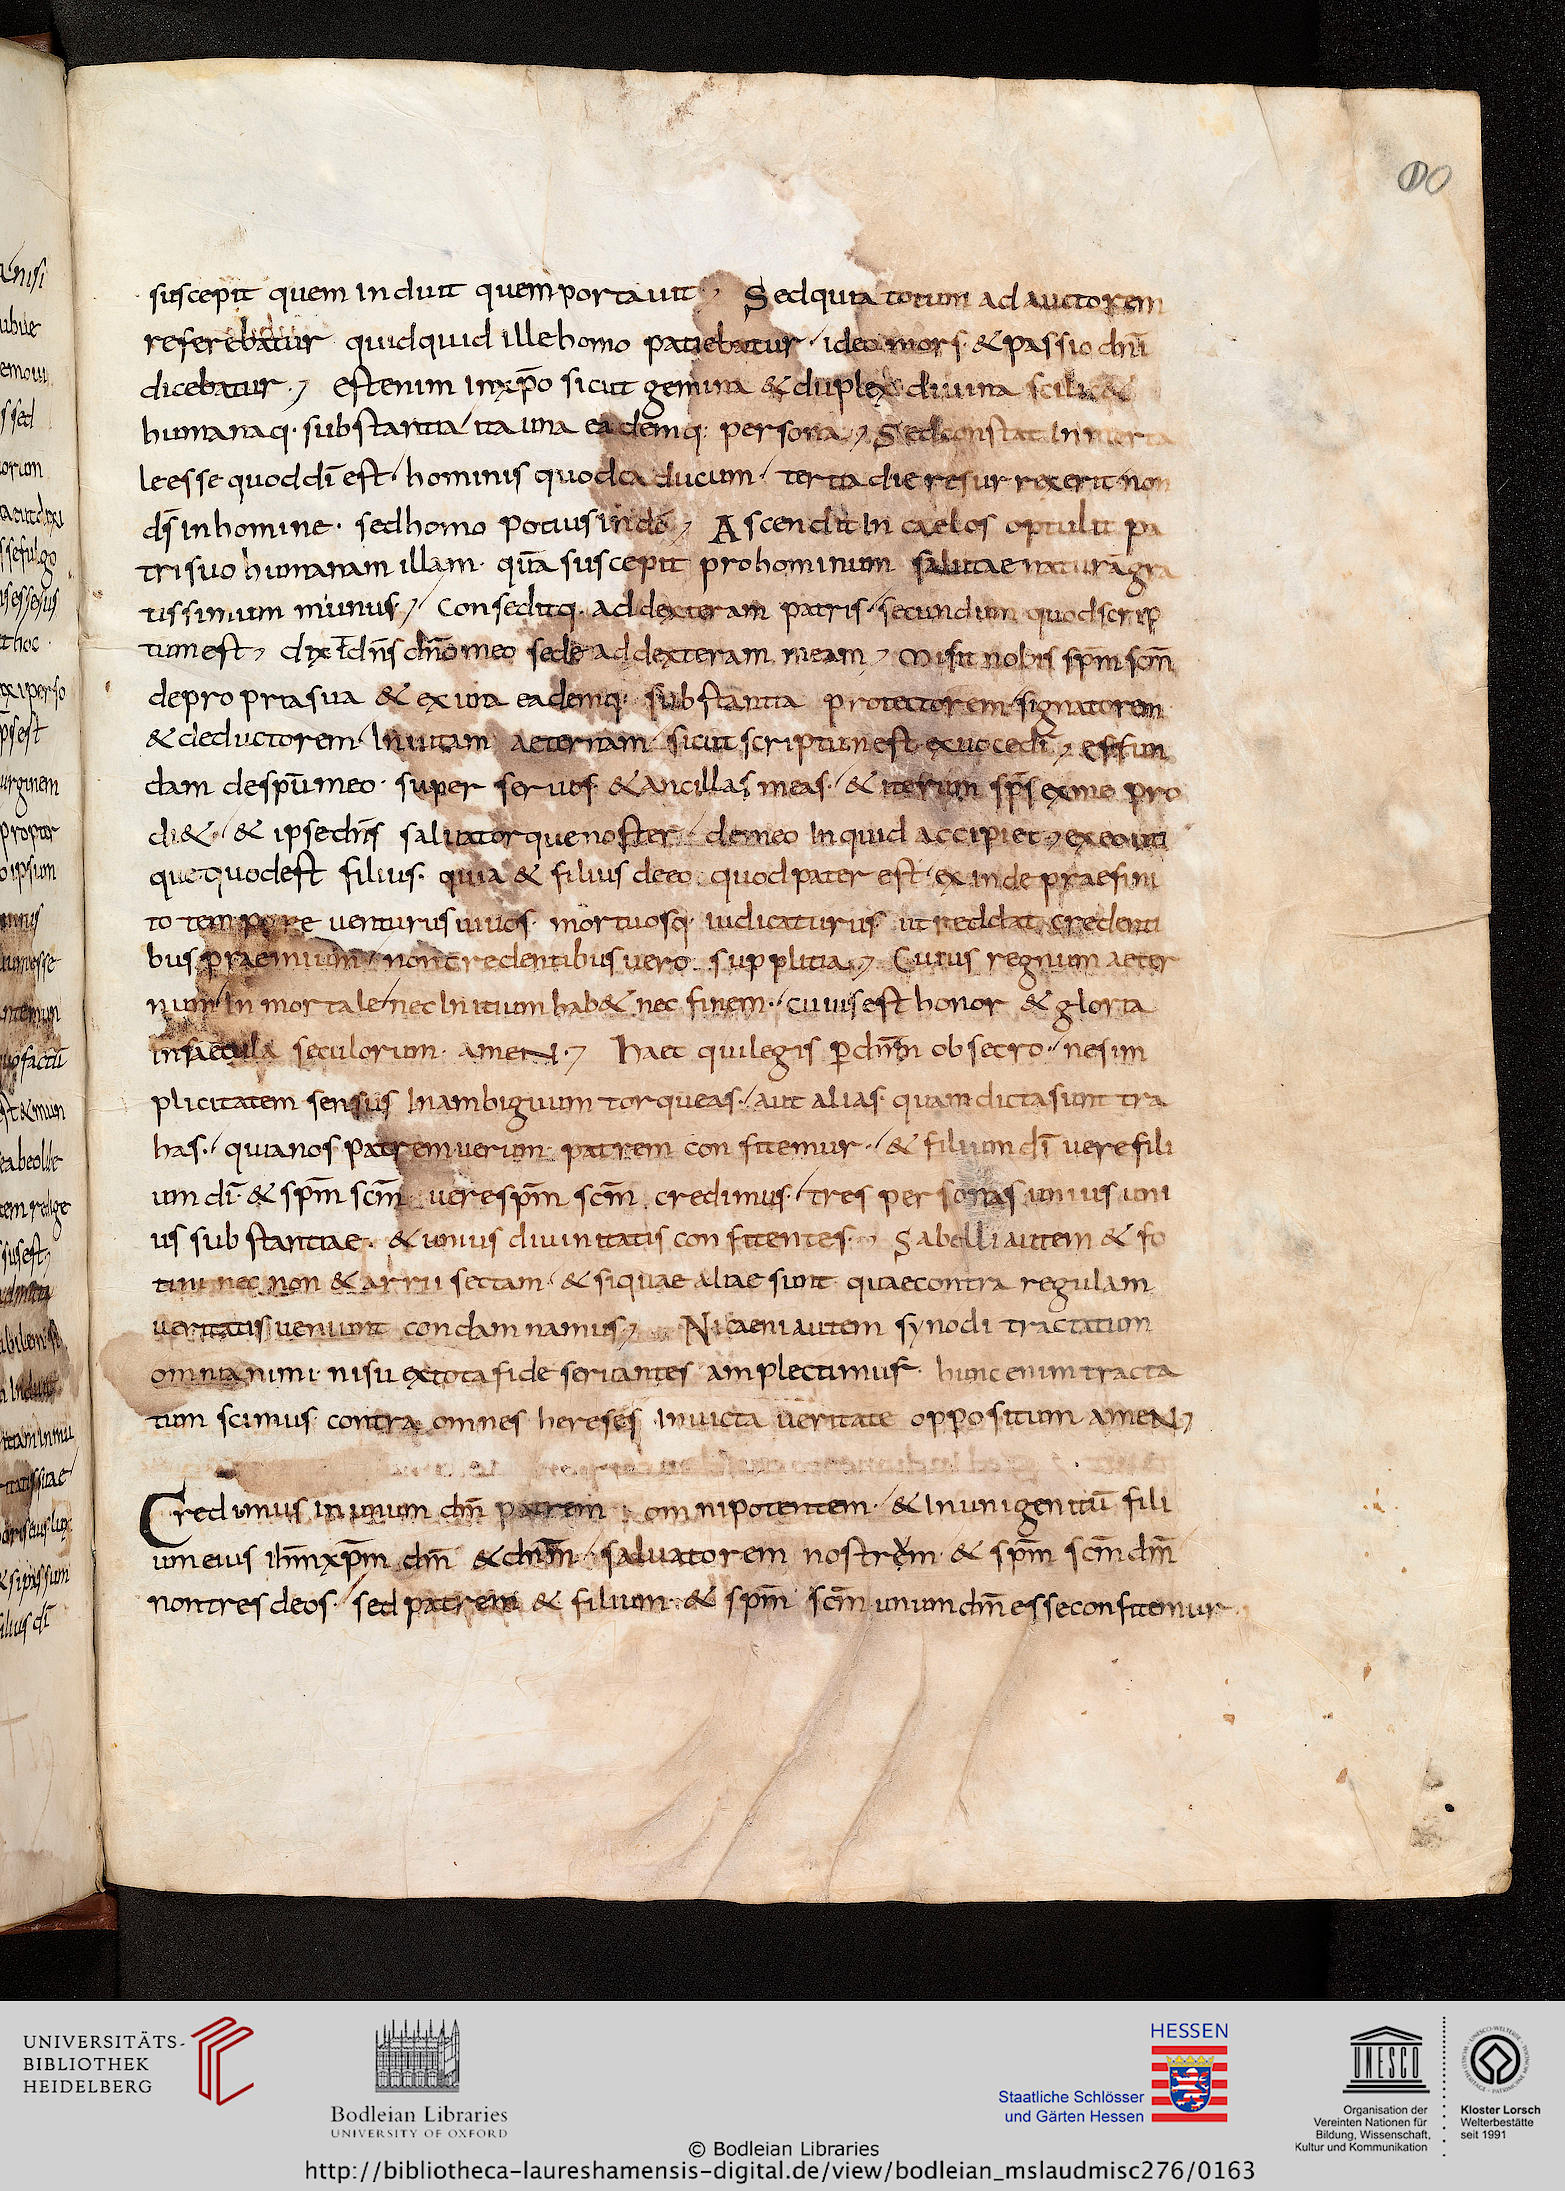 100
suscepit quem induit quem portauit Sed quia totum ad auctorem
referebatur quidquid ille homo patiebatur ideo mors & passio dn̄i
dicebatur est enim in xp̄o sicut gemina & duplex diuina scilic&
humanaq· substantia ita una eademq· persona Sed constat inmorta
le esse quod dī est hominis quod caducum tertia die resurrexerit non
ds̄ in homine· sed homo potius in dō Ascendit in caelos optulit pa
tri suo humanam illam· quā suscepit pro hominum salutae naturā gra
tissimum munus Conseditq· ad dexteram patris secundum quod scrip
tum est dixit dn̄s dn̄o meo sede ad dexteram meam Misit nobis sp̄m scm̄
de propria sua & ex una eademq· substantia protectorem signatorem
& deductorem in uitam aeternam sicut scriptum est ex uoce dī effun
dam de spū meo· super seruos & ancillas meas· & iterum sp̄s ex me pro
di& & ipse dn̄s saluatorque noster de meo inquid accipiet ex eo uti
que quod est filius· quia & filius de eo quod pater est exinde praefini
to tempore uenturus uiuos· mortuosq· iudicaturus ut reddat credenti
bus praemium non credentibus uero supplitia Cuius regnum aeter
num inmortale nec initium hab& nec finem· cuius est honor & gloria
in saecula seculorum· ameN· Haec qui legis p̱ dn̄m obsecro· ne sim
plicitatem sensus in ambiguum torqueas· aut alias quam dicta sunt tra
has· quia nos patrem uerum patrem confitemur· & filium dī uere fili
um dī· & sp̄m scm̄ uere sp̄m scm̄ credimus· tres personas unius uni
us substantiae· & unius diuinitatis confitentes· Sabelli autem & fo
tini nec non & arrii sectam· & si quae aliae sunt quae contra regulam
ueritatis ueniunt condamnamus Nicaeni autem synodi tractatum
omni animi nisu ex tota fide seruantes amplectimus· hunc enim tracta
tum scimus contra omnes hereses inuicta ueritate oppositum ameN
Credimus in unum dm̄ patrem omnipotentem· & in unigenitū fili
um eius ihm̄ xp̄m dm̄ & dn̄m saluatorem nostrum & sp̄m scm̄ dm̄
non tres deos· sed patrem & filium· & sp̄m scm̄ unum dm̄ esse confitemur
UNIVERSITÄTS-
BIBLIOTHEK
HEIDELBERG
Bodleian Libraries
UNIVERSITY OF OXFORD
HESSEN
Staatliche Schlösser
und Gärten Hessen
UNESCO
Organisation der
Vereinten Nationen für
Bildung, Wissenschaft,
Kultur und Kommunikation
Kloster Lorsch
Welterbestätte
seit 1991
© Bodleian Libraries
http://bibliotheca-laureshamensis-digital.de/view/bodleian_mslaudmisc276/0163